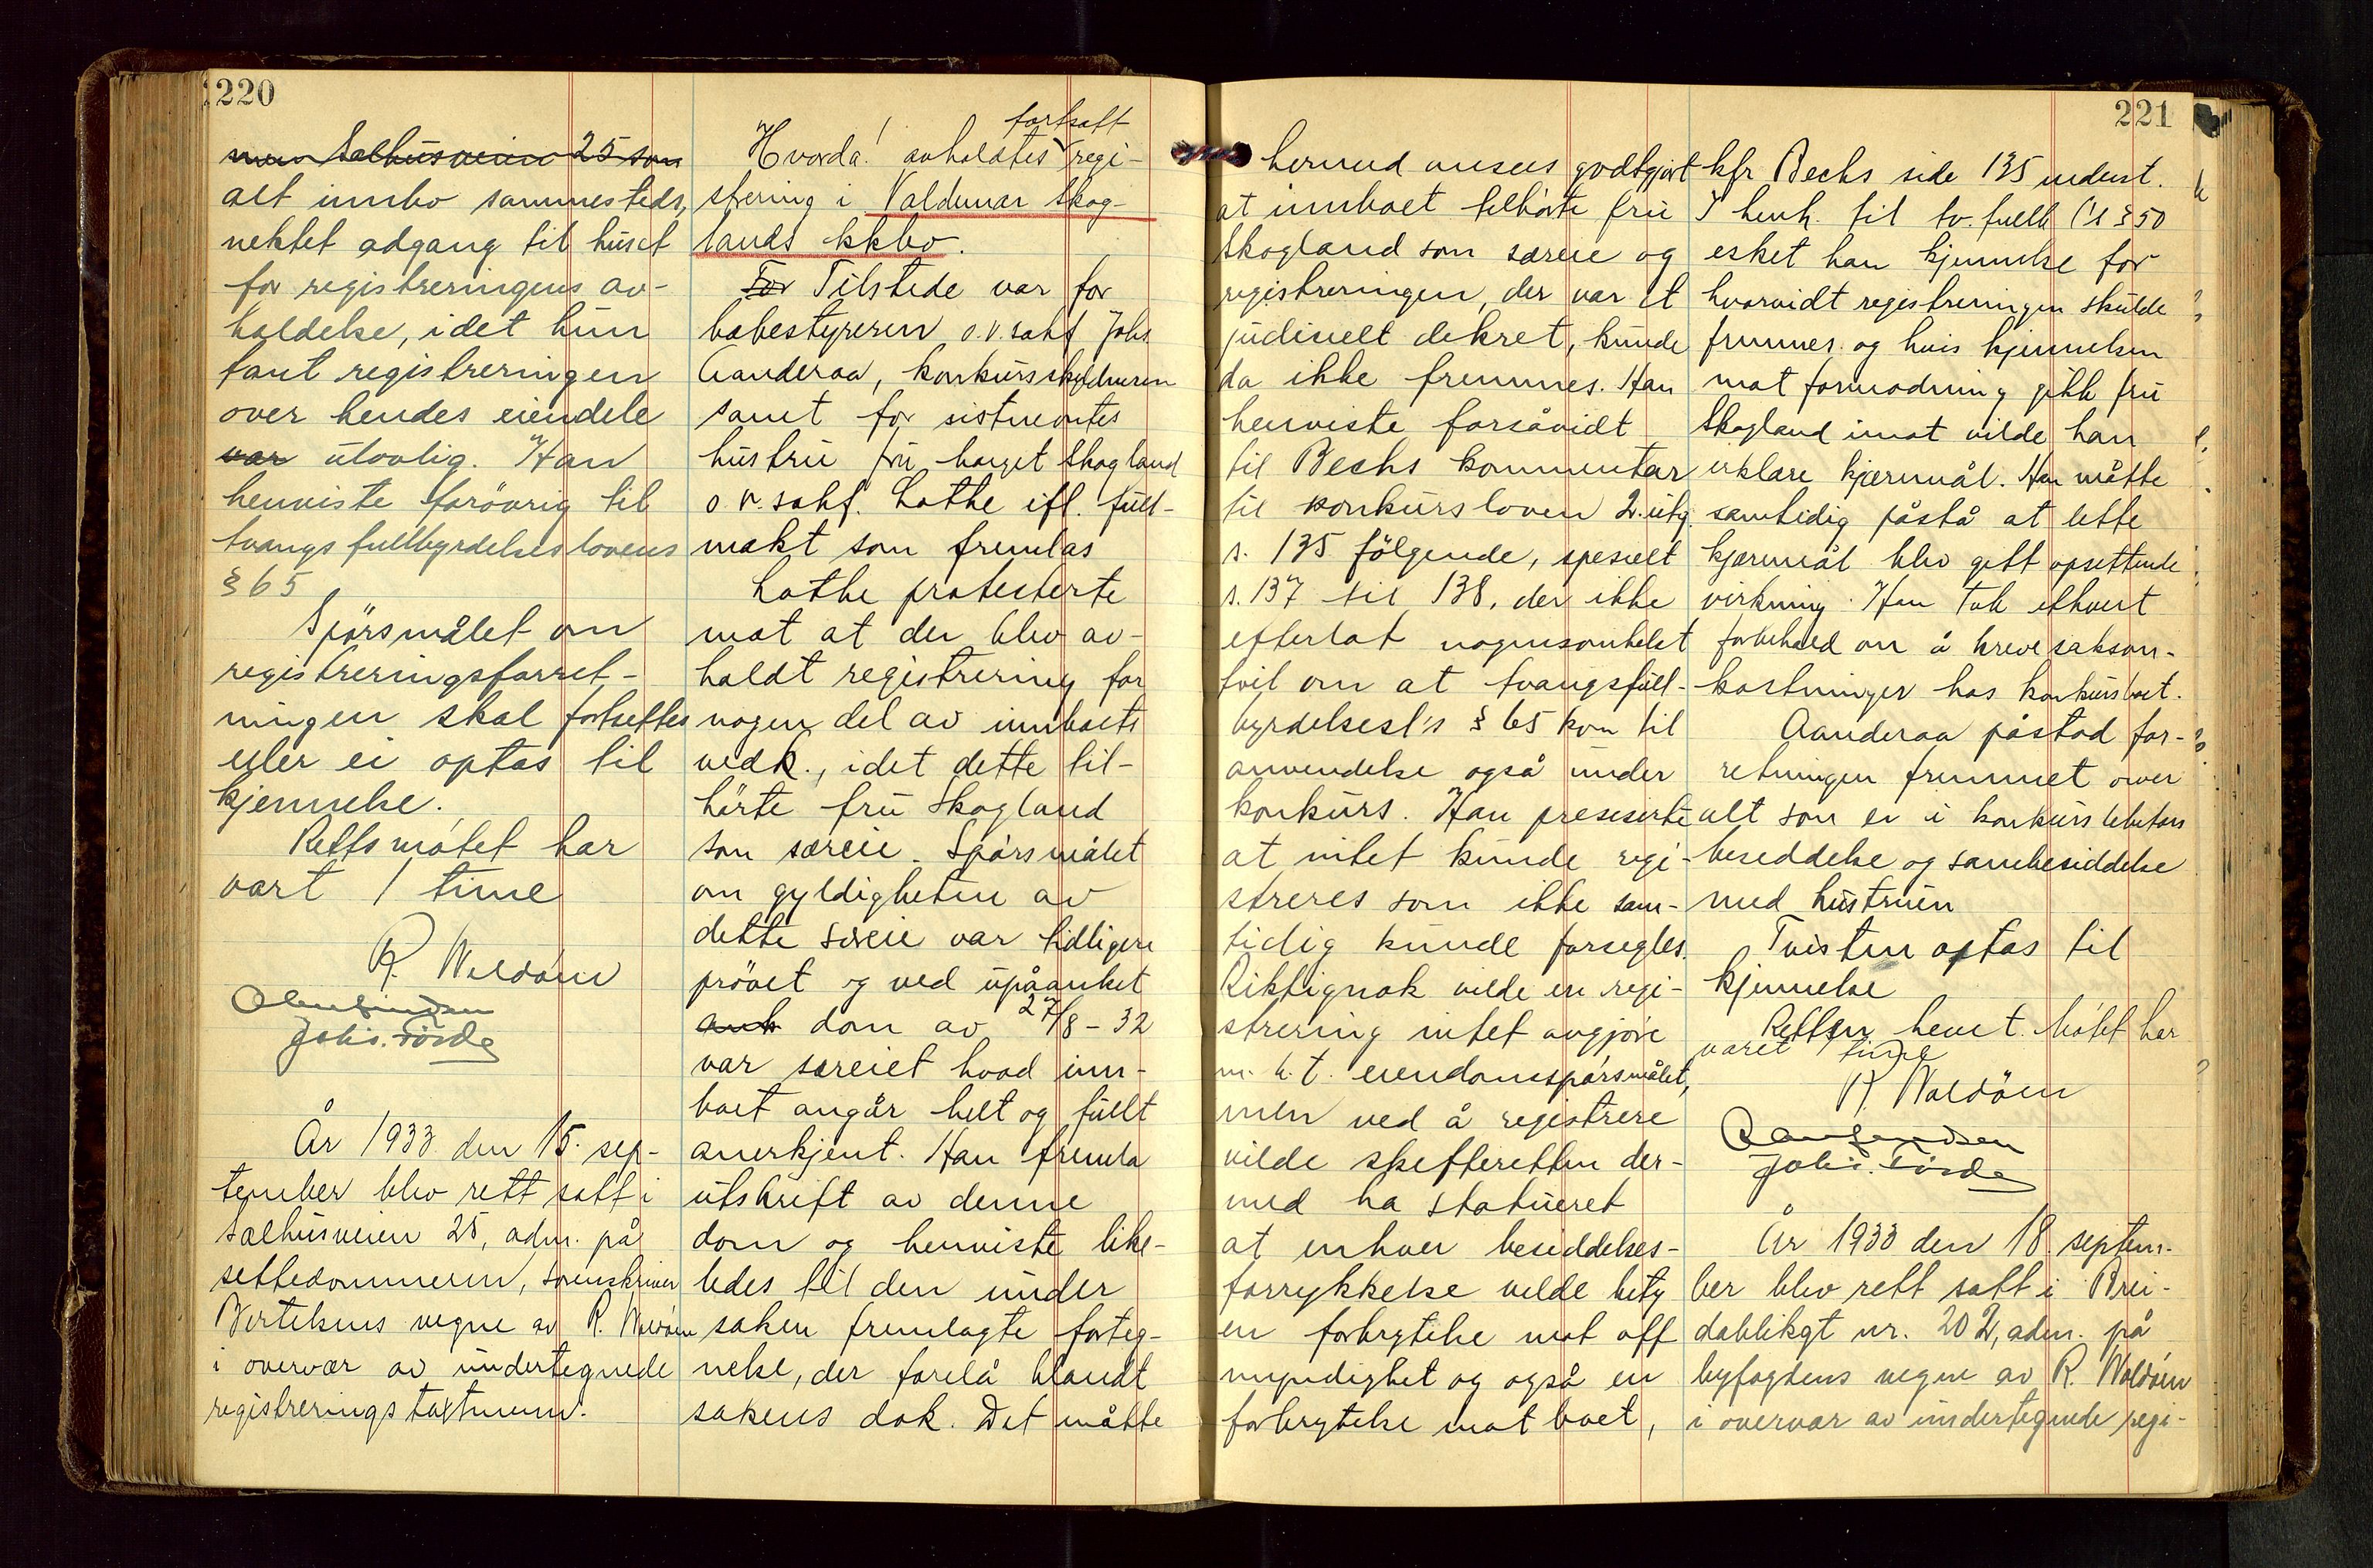 220
men Salhusveien 25 som
alt innbo sammesteds,
nektet adgang til huset
for registreringens av-
holdelse, idet hun
fant registreringen
over hendes eiendele
var ulovlig. Han
henviste forövrig til
tvangsfullbyrdelseslovens
§ 65
Spörsmålet om
registreringsforret-
ningen skal fortsettes
eller ei optas til
kjennelse.
Rettsmötet har
vart 1 time
R. Waldöen
Johs. Förde
År 1933 den 15. sep-
tember blev rett satt i
Salhusveien 25, adm. på
settedommeren, sorenskriver
Bertelsens vegne av R. Waldöen
i overvær av undertegnede
registreringstaxtmenn.
Hvorda! avholdtes fortsatt regi-
strering i Valdemar Skog-
lands kkbo.
For Tilstede var for
bobestyreren o.r.sakf Johs
Aanderaa, konkursskyldneren
samt for sistnevntes
hustru fru Skogland
o.r.sakf. Lothe ifl. full-
makt som fremlas
Lothe protesterte
mot at der blev av-
holdt registrering for
nogen del av innboets
vedk., idet dette til-
hörte fru Skogland
som særeie. Spörsmålet
om gyldigheten av
dette særeie var tidligere
prövet og ved upåanket
ank dom av 27/8 - 32
var særeiet hvad inn-
boet angår helt og fullt
anerkjent. Han fremla
utskrift av denne
dom og henviste like-
ledes til den under
saken fremlagte forteg-
nelse, der forelå blandt
sakens dok. Det måtte
221
hermed ansees godtgjort
at innboet tilhörte fru
Skogland som særeie og
registreringen, der var et
judicielt dekret, kunde
da ikke fremmes. Han
henviste forsåvidt
til Bechs kommentar
til konkursloven 2. utg.
s. 135 fölgende, specielt
s. 137 til 138, der ikke
efterlot nogensomhelst
tvil om at tvangsfull-
byrdelsesl's § 65 kom til
anvendelse også under
konkurs. Han presiserte
at intet kunde regi-
streres som ikke sam-
tidig kunde forsegles.
Riktignok vilde en regi-
strering intet avgjöre
m.h.t. eiendomsspörsmålet,
men ved å registrere
vilde skifteretten der-
med ha statueret
at enhver besiddelses-
forrykkelse vilde bety
en forbrytelse mot off
myndighet og også en
forbrytelse mot boet,
kfr Bechs side 135 nederst.
I henh. til tv.fullb l's § 50
esket han kjennelse for
hvorvidt registreringen skulde
fremmes og hvis kjennelsen
mot formodning gikk fru
Skogland imot vilde han
erklære kjæremål. Han måtte
samtidig påstå at dette
kjæremål blev gitt opsettende
virkning. Han tok ethvert
forbehold om å kreve saksom-
kostninger hos konkursboet.
Aanderaa påstod for-
retningen fremmet over
alt som er i konkursdebitors
besiddelse og sambesiddelse
med hustruen
Tvisten optas til
kjennelse
Retten hevet. Mötet har
varet 1 time
R. Waldöen
Johs. Förde
År 1933 den 18. septem-
ber blev rett satt i Brei-
dablikgt nr. 202, adm. på
byfogdens vegne av R. Waldöen
i overvær av undertegnede regi-